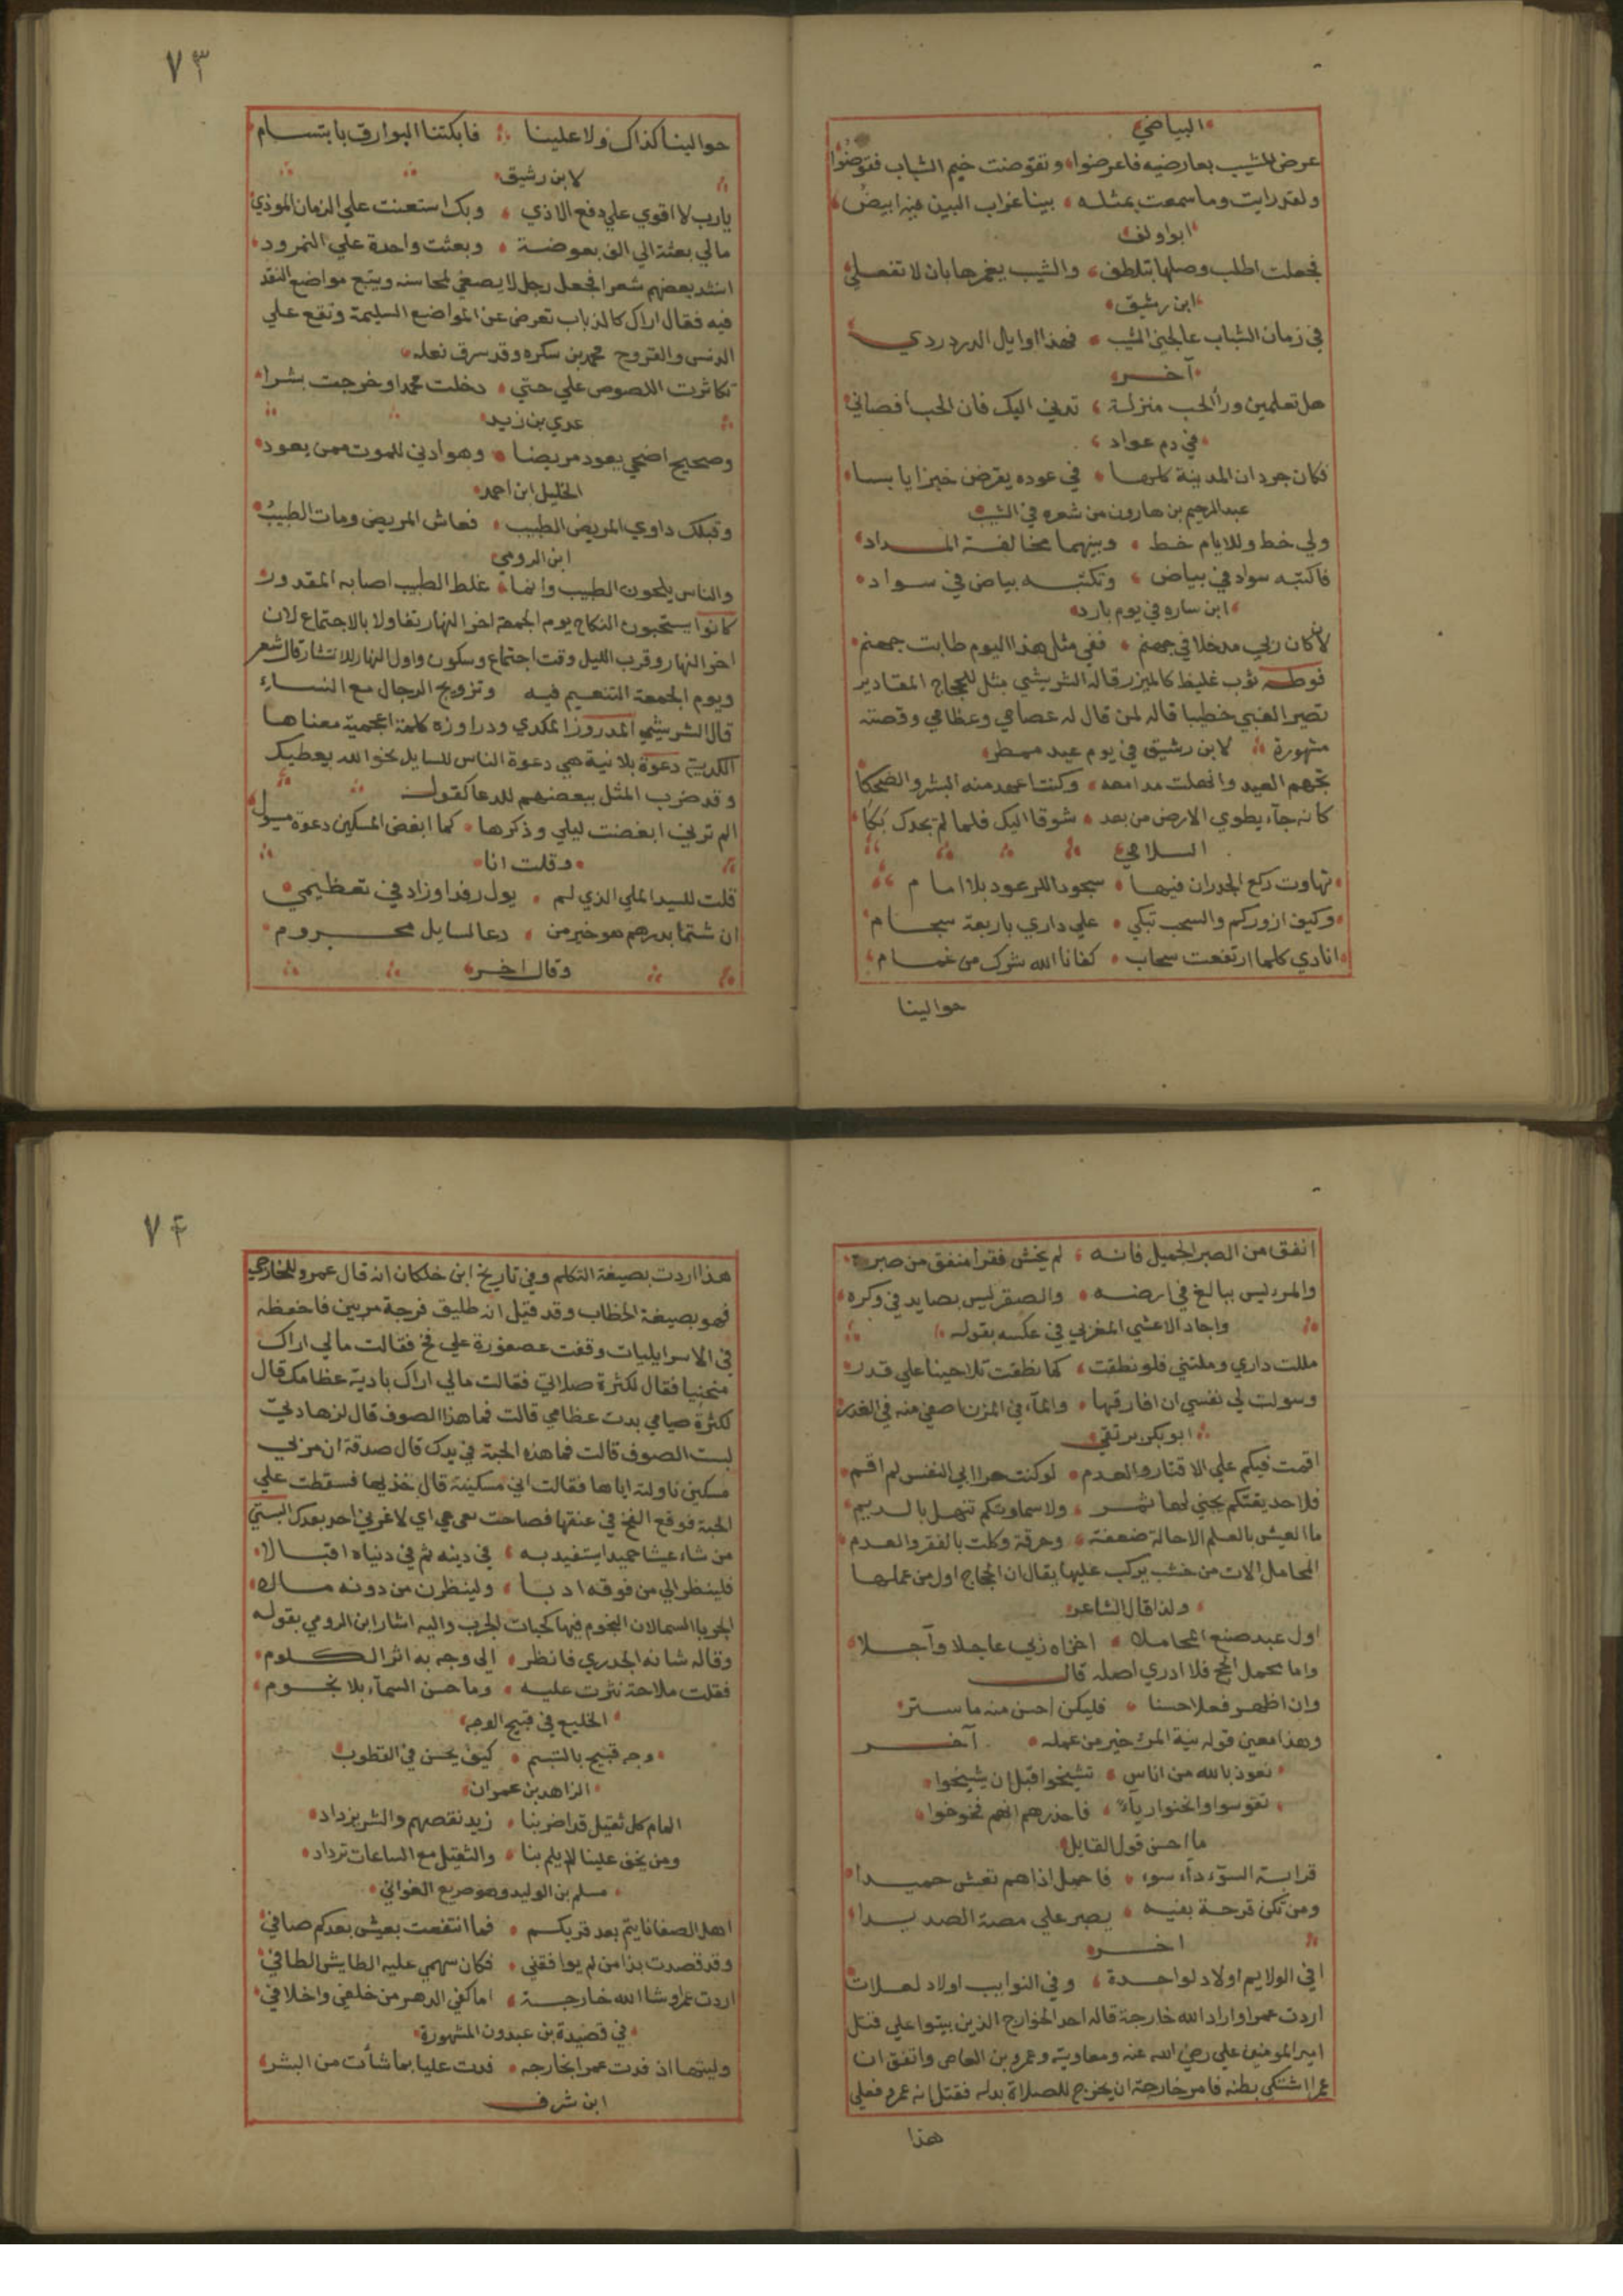 البياضي
عرض المشيب بعارضيه فاعرضوا وتقوضت خيم الشباب فقوضوا
ولقد رايت وما سمعت بمثله بينا غراب البين فيه ابيض
ابو دلف
فجعلت اطلب وصلها بتلطف والشيب يغمزها بان لا تفعلي
ابن رشيق
في زمان الشباب عاجلني الشيب فهذا اوايل الدن دردي
آخر
هل تعلمين ورأ الحب منزلة تدني اليك فان الحب اقصاني
في ذم عواد
فكان جردان المدينة كلها في عوده يقرض خبزا يابسا
عبد الرحيم بن هارون من شعره في الشيب
ولي خط وللايام خط وبينهما مخالفة المداد
فاكتبه سواد في بياض وتكتبه بياض في سواد
ابن ساره في يوم بارد
لان كان ربي مدخلا في جهنم ففي مثل هذا اليوم طابت جهنم
فوطه ثوب غليظ كالميزر قاله الشريشي مثل للحجاج المقادير
تصير الغبي خطيبا قاله لمن قال له عصامي وعظامي وقصته
مشهورة لابن رشيق في يوم عيد ممطر
تجهم العيد وانهلت مدامعه وكنت اعهد منه البشر والضحكا
كانه جآء يطوي الارض من بعد شوقا اليك فلما لم يجدك بكا
السلامي
تهاوت ركع الجدران فيها سجودا للرعود بلا امام
وكيف ازوركم والسحب تبكي علي داري باربعة سجام
انادي كلما ارتفعت سحاب كفانا الله شرك من غمام
حوالينا
٧٣
حوالينا كذاك ولا علينا فابكتنا البوارق بابتسام
لابن رشيق
يارب لا اقوي علي دفع الاذي وبك استعنت علي الزمان الموذي
مالي بعثت الي الف بعوضة وبعثت واحدة علي النمرود
انشد بعضهم شعرا فجعل رجل لا يصغي لمحاسنه ويتبع مواضع النقد
فيه فقال اراك كالذباب تعرض عن المواضع السليمة وتقع علي
الدنس والقروح محمد بن سكره وقد سرق نعله
تكاثرت اللصوص علي حتي دخلت محمدا وخرجت بشرا
عدي بن زيد
وصحيح اضحي يعود مريضا وهو ادني للموت ممن يعود
الخليل ابن احمد
وقبلك داوي المريض الطبيب فعاش المريض ومات الطبيب
ابن الرومي
والناس يلحون الطبيب وانما غلط الطبيب اصابه المقدور
كانوا يستحبون النكاح يوم الجمعة اخر النهار تفاولا بالاجتماع لان
اخر النهار وقرب الليل وقت اجتماع وسكون واول النهار للانتشار قال شعر
ويوم الجمعة التنعيم فيه وتزويج الرجال مع النساء
قال الشريشي المدروز المكدي ودراوزه كلمة اعجمية معناها
الكدية دعوة بلا نية هي دعوة الناس للسايل نحو الله يعطيك
وقد ضرب المثل ببعضهم للدعا كقول
الم ترني ابغضت ليلي وذكرها كما ابغض المسكين دعوة ميول
وقلت انا
قلت للسيد الملي الذي لم يول رفدا وزاد في تعظيمي
ان شتما بدرهم هو خير من دعا لسايل محروم
وقال اخر
انفق من الصبر الجميل فانه لم يخش فقرا منفق من صبره
والمرء ليس ببالغ في ارضه والصقر ليس بصايد في وكره
واجاد الاعشي المغربي في عكسه بقوله
مللت داري وملتني فلو نطقت كما نطقت تلاحينا علي قدر
وسولت لي نفسي ان افارقها والمآء في المزن اصفي منه في الغدر
ابو بكر بن تقي
اقمت فيكم علي الاقتار والعدم لو كنت حرا ابي النفس لم اقم
فلا حديقتكم يجني لها ثمر ولا سماوتكم تنهل بالديم
ما العيش بالعلم الا حالة ضعفة وحرقة وكلت بالفقر والعدم
المحامل الات من خشب يركب عليها يقال ان الحجاج اول من عملها
ولذا قال الشاعر
اول عبد صنع المحاملا اخزاه ربي عاجلا وآجلا
واما محمل الحج فلا ادري اصله قال
وان اظهر فعلا حسنا فليكن احسن منه ما ستر
وهذا معني قوله نية المرء خير من عمله آخر
نعوذ بالله من اناس تشيخوا قبل ان يشيخوا
تقوسوا وانحنوا رياء فاحذرهم انهم فخوخوا
ما احسن قول القايل
قرابة السوء داء سوء فاحمل اذاهم تعش حميدا
ومن تكن قرحة بفيه يصبر علي مصة الصديدا
اخر
افي الولايم اولاد لواحدة وفي النوايب اولاد لعلات
اردت عمرا واراد الله خارجة قاله احد الخوارج الذين بيتوا علي قتل
امير المومنين علي رضي الله عنه ومعاوية وعمرو بن العاص واتفق ان
عمرا اشتكي بطنه فامر خارجة ان يخرج للصلاة بدله فقتل انه عمرو فعلي
هذا
٧٤
هذا اردت بصيغة التكلم وفي تاريخ ابن خلكان انه قال عمرو للخارجي
فهو بصيغة الخطاب وقد قيل ان طليق فرجة مربين فاحفظه
في الاسرايليات وقفت عصفورة علي فخ فقالت مالي اراك
منحنيا فقال لكثرة صلاتي فقالت مالي اراك بادية عظامك قال
لكثرة صيامي بدت عظامي قالت فما هذا الصوف قال لزهادتي
لبست الصوف قالت فما هذه الحبة في يدك قال صدقة ان مر بي
مسكين ناولته اياها فقالت اني مسكينة قال خذيها فسقطت علي
الحبة فوقع الفخ في عنقها فصاحت عي عي اي لا غرني احد بعدك البستي
من شاء عيشا حميدا يستفيد به في دينه ثم في دنياه اقبالا
فلينظر الي من فوقه ادبا ولينظرن من دونه مالا
الجربا السما لان النجوم فيها كحبات الجرب واليه اشار ابن الرومي بقوله
وقاله شانه الجدري فانظر الي وجه به اثر الكلوم
فقلت ملاحة نثرت عليه وما حسن السمآء بلا نجوم
الخليع في قبيح الوجه
وجه قبيح بالتبسم كيف يحسن في القطوب
الزاهد بن عمران
العام كل ثقيل قد اضر بنا زيد نقصهم والشر يزداد
ومن يخف علينا لا يلم بنا والثقيل مع الساعات ترداد
مسلم بن الوليد وهو صريع الغواني
اهل الصفا نايتم بعد قربكم فما انتفعت بعيش بعدكم صافي
وقد قصدت بذا من لم يوافقني فكان سهمي عليه الطايش الطافي
اردت عمرا وشا الله خارجة اما كفي الدهر من خلفي واخلافي
في قصيدة بن عبدون المشهورة
وليتها اذ فدت عمرا بخارجه فدت عليا بما شأت من البشر
ابن شرف